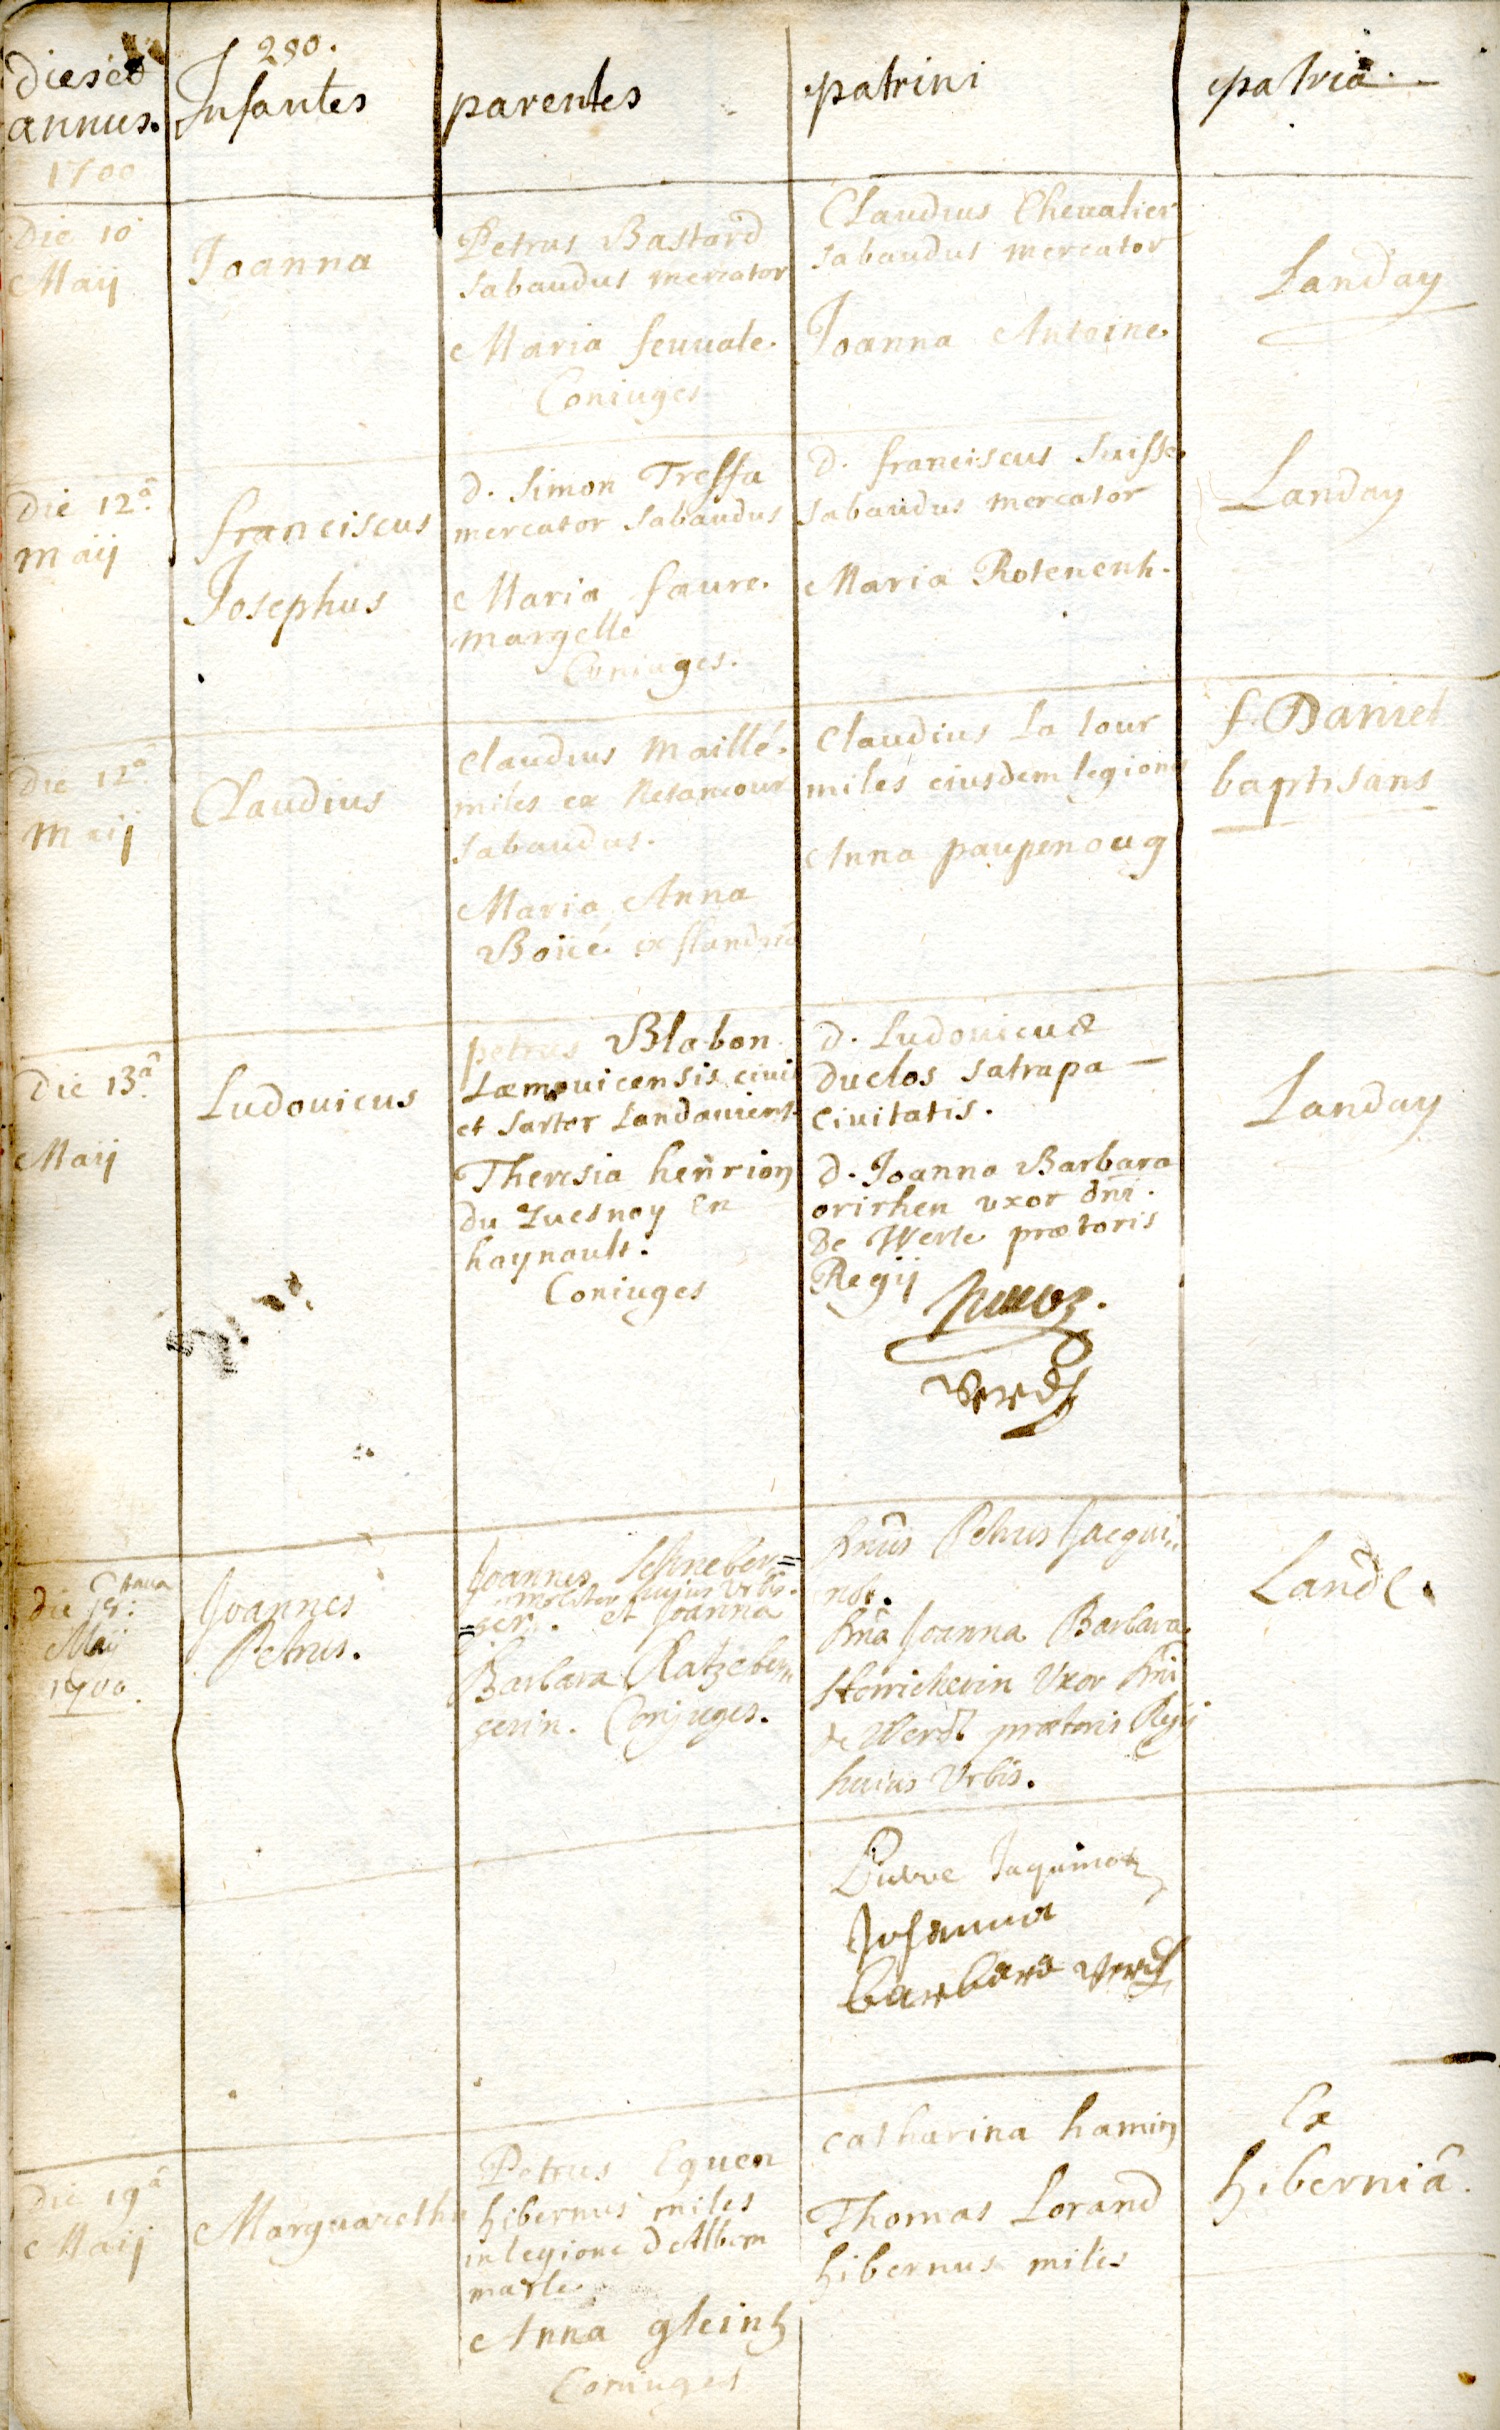 280.
dies et
annus.
Infantes
parentes
patrini
patria.
1700
Die 10
Maij
Joanna
Petrus Bastard
sabaudus mercator
Maria feuuale.
Coniuges
Claudius Cheualier
sabaudus mercator
Joanna Antoine.
Landay
Die 12ª
Maij
franciscus
Josephus
d. Simon Tressa
mercator Sabaudus
Maria faure.
margelle
Coniuges.
d. franciscus Suisse
sabaudus mercator
Maria Rotenenh.
Landay
Die 12ª
Maij
Claudius
Claudius Maillé.
miles ex
sabaudus.
Maria Anna
Boiié ex flandria
Claudius La tour
miles eiusdem legionis
Anna paupenoug
f. Daniel
baptisans
Die 13ª
Maij
Ludouicus
petrus Blabon
Læmouicensis ciuis
et sartor Landauiens
Theresia henrion
du Quesnoy En
haynault.
Coniuges
d. Ludouicus
duclos satrapa
Ciuitatis.
d. Joanna Barbara
orirhen uxor dni.
De Werle prætoris
Regij
Werdh
Landay
die 18:
Maij
1700.
Joannes
Petrus.
Joannes Schneber=
molitor hujus Urbis.
=ger. et Joanna
Barbara Ratzeber,,
gerin. Conjuges.
Dnus Petrus Jacqui,,
not.
Dna Joanna Barbara
Storrickerin Uxor Dni
de Werdt prætoris Regij
huius Urbis.
Landt.
Pierre Jaquinot
Johanna
barbara Werdh
Die 19ª
Maij
Marguaretha
Petrus Eguen
hibernus miles
in legione d'Albem
marle.
Anna gleinh
Coniuges
catharina hamin
Thomas Lorand
hibernus miles
Ex
hiberniâ.